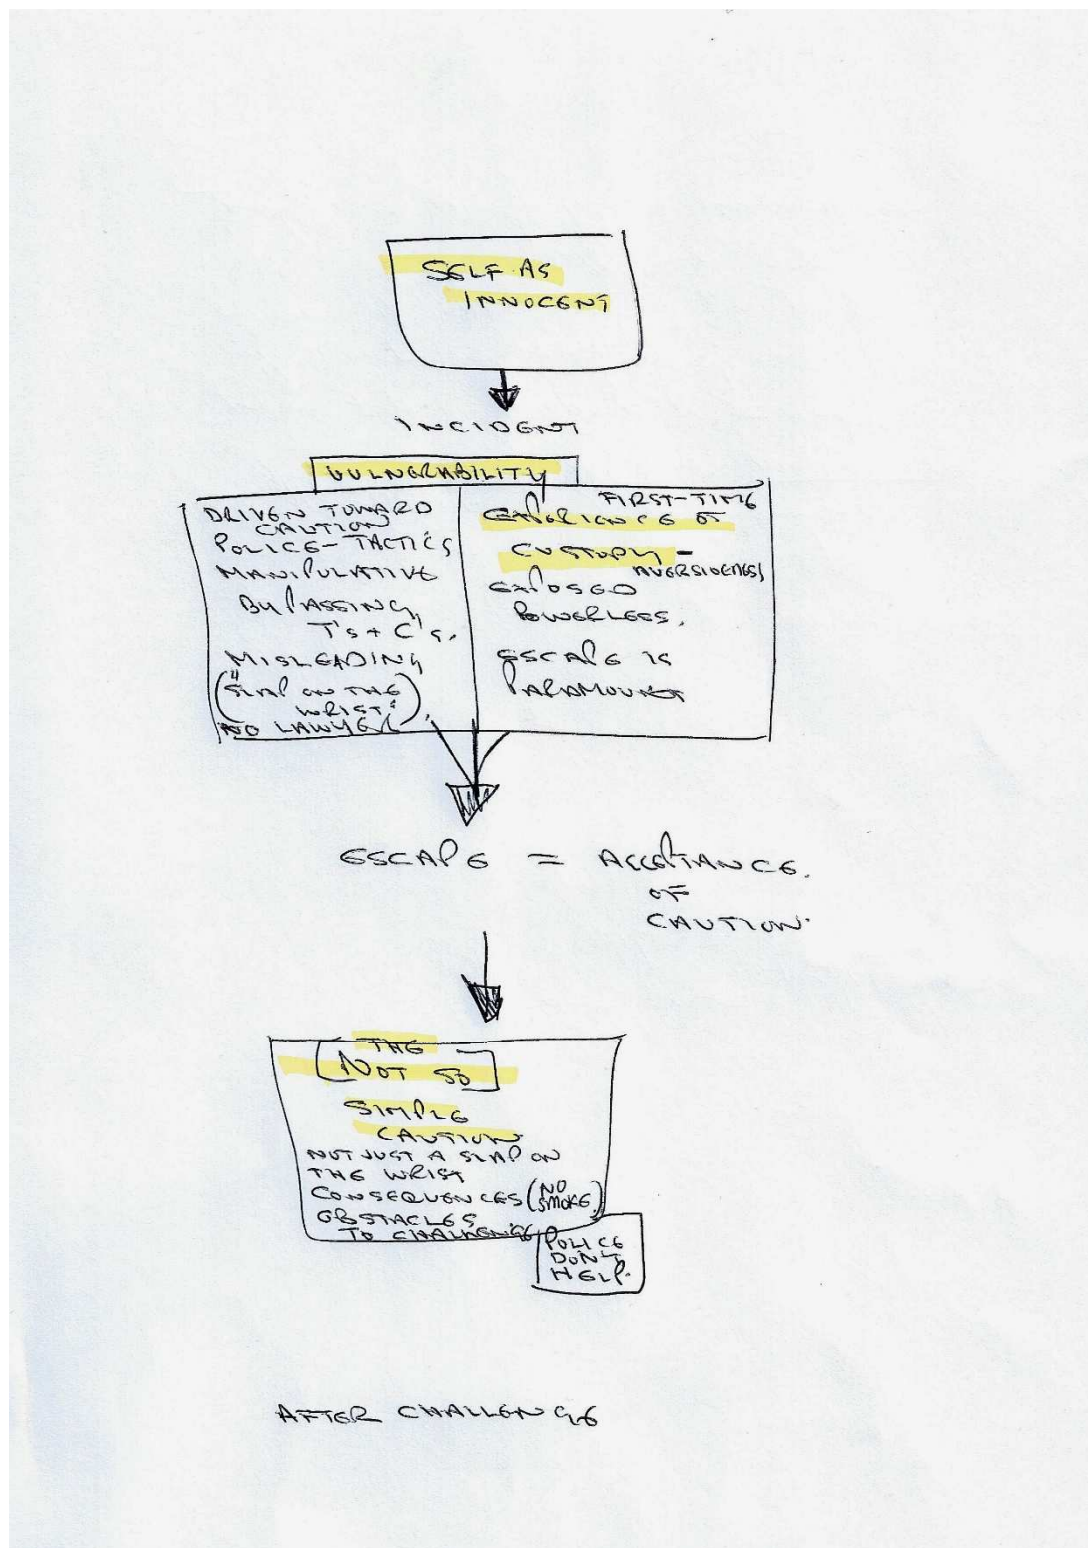 SELF AS
INNOCENT
INCIDENT
VULNERABILITY
DRIVEN TOWARD
CAUTION
POLICE-TACTICS
MANIPULATIVE
BYPASSING
T's + C's.
MISLEADING
("SLAP ON THE
WRIST")
NO LAWYER
FIRST-TIME
EXPERIENCE OF
CUSTODY -
AVERSIVENESS
EXPOSED
POWERLESS.
ESCAPE IS
PARAMOUNT
ESCAPE = ACCEPTANCE.
OF
CAUTION.
THE
[NOT SO]
SIMPLE
CAUTION
NOT JUST A SLAP ON
THE WRIST
CONSEQUENCES (NO
SMOKE)
OBSTACLES
TO CHALLENGE
POLICE
DON'T
HELP.
AFTER CHALLENGE